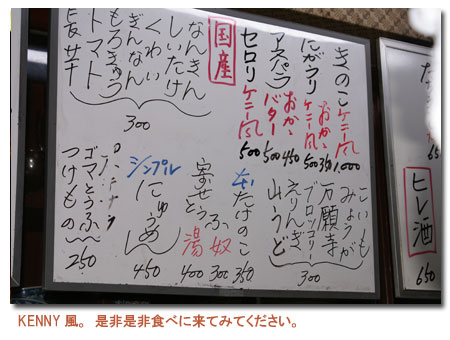 きのこ ケニー風 1,000
おかか 350
ケニー風 500
アスパラ おかか 450
バター 500
セロリ ケニー風 500
国産
なんきん
しいたけ
くわい
ぎんなん
もろきゅう
トマト
長芋
300
こいも
みょうが
万願寺
ブロッコリー
えりんぎ
山うど
300
たけのこ 350
寄せとうふ 奴 300
湯 400
シンプル にゅうめん 450
ゴマとうふ
つけもの
250
な
650
ヒレ酒
650
KENNY風。 是非是非食べに来てみてください。